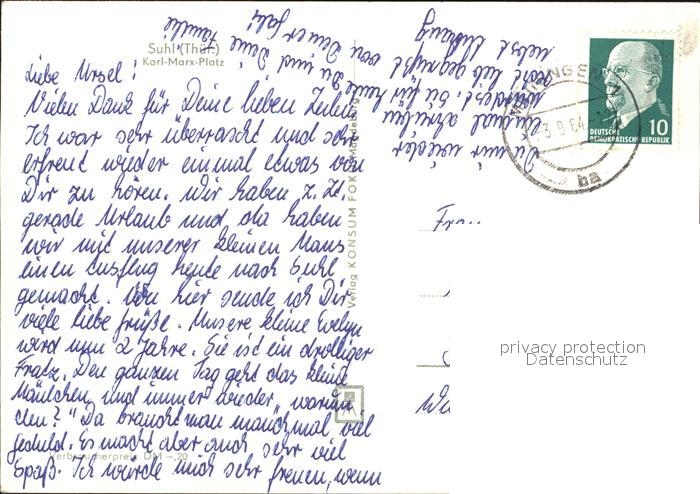 Suhl (Thür.)
Karl-Marx-Platz
Liebe Ursel!
Vielen Dank für Deine lieben Zeilen.
Ich war sehr überrascht und sehr
erfreut wieder einmal etwas von
Dir zu hören. Wir haben z. Zt.
gerade Urlaub und da haben
wir mit unserer kleinen Maus
einen Ausflug heute nach Suhl
gemacht. Von hier sende ich Dir
viele liebe Grüße. Unsere kleine Evelyn
wird nun 2 Jahre. Sie ist ein drolliger
Fratz. Den ganzen Tag geht das kleine
Mäulchen und immer wieder „warum
denn?" Da braucht man manchmal viel
Geduld. Es macht aber auch sehr viel
Spaß. Ich würde mich sehr freuen, wenn
Du mir wieder
einmal schreiben
würdest. Sei für heute
recht lieb gegrüßt von Deiner
nebst
Du und Deine Familie
Verbraucherpreis DM -,20
Verlag KONSUM FOTO Magdeburg
DEUTSCHE
DEMOKRATISCHE REPUBLIK
10
ba
privacy protection
Datenschutz